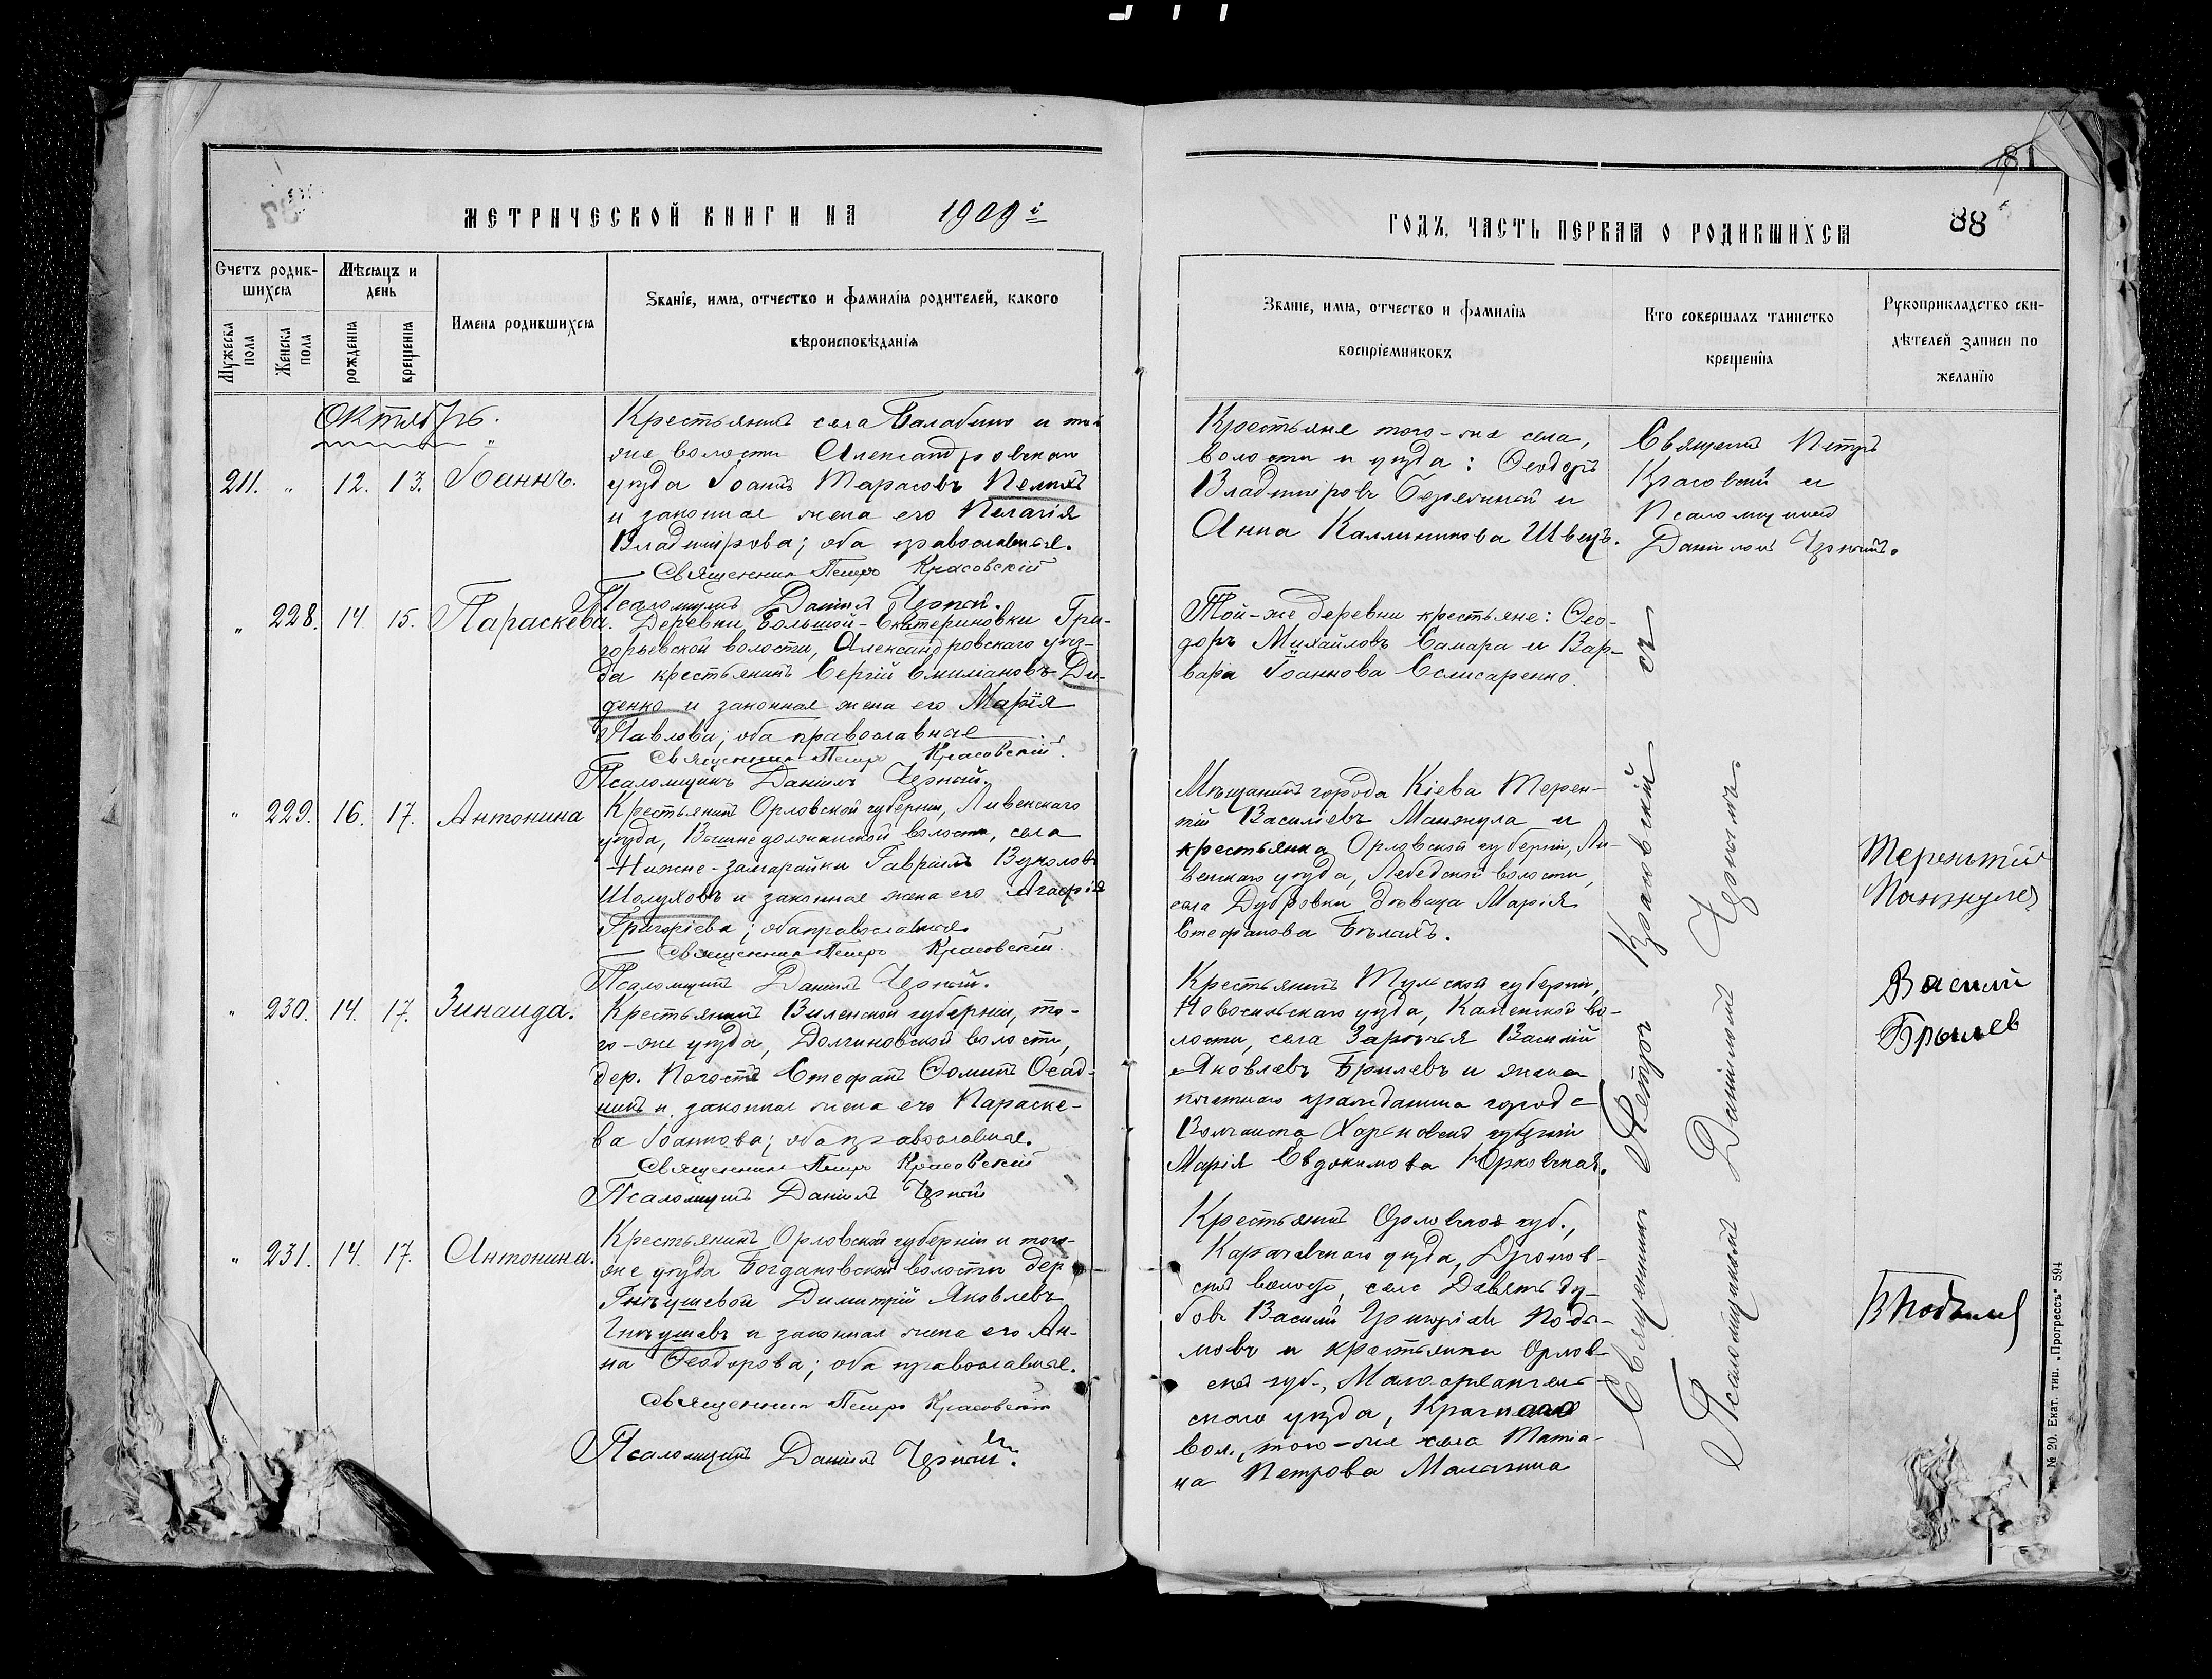 81
МЕТРИЧЕСКОЙ КНИГИ НА 1909 й
ГОДЪ, ЧАСТЬ ПЕРВАЯ О РОДИВШИХСЯ 88
Счетъ родив-
шихся
Мужеска
пола
Женска
пола
Мѣсяцъ и
день
рожденія
крещенія
Имена родившихся
Званіе, имя, отчество и фамилія родителей, какого
вѣроисповѣданія
Званіе, имя, отчество и фамилія
воспріемниковъ
Кто совершалъ таинство
крещенія
Рукоприкладство сви-
дѣтелей записи по
желанію
Октябрь.
211. „ 12. 13. Іоаннъ.
Крестьянинъ села Балабино и той
же волости Александровскаго
уѣзда Іоаннъ Тарасовъ Пелихъ
и законная жена его Пелагія
Владимірова; оба православные.
Священникъ Петръ Красовскій
Псаломщикъ Даніилъ Черный.
Крестьяне того-же села,
волости и уѣзда: Ѳеодоръ
Владиміровъ и
Анна Каллиникова Швецъ.
Священникъ Петръ
Красовскій и
Псаломщикъ
Даніилъ Черный.
„ 228. 14. 15. Параскева.
Деревни Большой-Екатериновки Гри-
горьевской волости, Александровскаго уѣз-
да крестьянинъ Сергій Емиліановъ Ди-
денко и законная жена его Марія
Павлова; оба православные
Священникъ Петръ Красовскій.
Псаломщикъ Даніилъ Черный.
Той-же деревни крестьяне: Ѳео-
доръ Михайловъ Самара и Вар-
вара Іоаннова Селисаренко.
„ 229. 16. 17. Антонина
Крестьянинъ Орловской губерніи, Ливенскаго
уѣзда, Вышнедолжанской волости, села
Нижне-Замарайки Гавріилъ Вуколовъ
Шолуховъ и законная жена его Агафія
Григоріева; оба православные.
Священникъ Петръ Красовскій.
Псаломщикъ Даніилъ Черный.
Мѣщанинъ города Кіева Терен-
тій Василіевъ Манжула и
крестьянка Орловской губерніи, Ли-
венскаго уѣзда, Лебедской волости,
села Дубровки дѣвица Марія
Стефанова Бѣлыхъ.
Терентій
Манжула
„ 230. 14. 17. Зинаида.
Крестьянинъ Виленской губерніи, то-
го-же уѣзда, Долгиновской волости,
дер. Погостъ Стефанъ Ѳоминъ Осад-
чихъ и законная жена его Параске-
ва Іоаннова; оба православные.
Священникъ Петръ Красовскій
Псаломщикъ Даніилъ Черный
Крестьянинъ Тульской губерніи,
Новосильскаго уѣзда, Каменской во-
лости, села Зарѣчья Василій
Яковлевъ Брылевъ и жена
почетнаго гражданина города
Волчанска Харьковской губерніи
Марія Евдокимова Юрковская.
Василий
Брылев
„ 231. 14. 17. Антонина.
Крестьянинъ Орловской губерніи и того-
же уѣзда Богдановской волости дер
Гнѣушевой Димитрій Яковлевъ
Гнѣушевъ и законная жена его Ан-
на Ѳеодорова; оба православные.
Священникъ Петръ Красовскій
Псаломщикъ Даніилъ Черный.
Крестьянинъ Орловской губ.,
Карачевскаго уѣзда, Дронов-
ской волости, села Девять Ду-
бовъ Василій Григоріевъ
и крестьянка Орлов-
ской губ., Мало-архангель-
скаго уѣзда,
вол., того-же села Татіа-
на Петрова Малахина
Священникъ Петръ Красовскій съ
Псаломщикомъ Даніиломъ Чернымъ.
№ 20. Екат. тип. „Прогрессъ“ 594